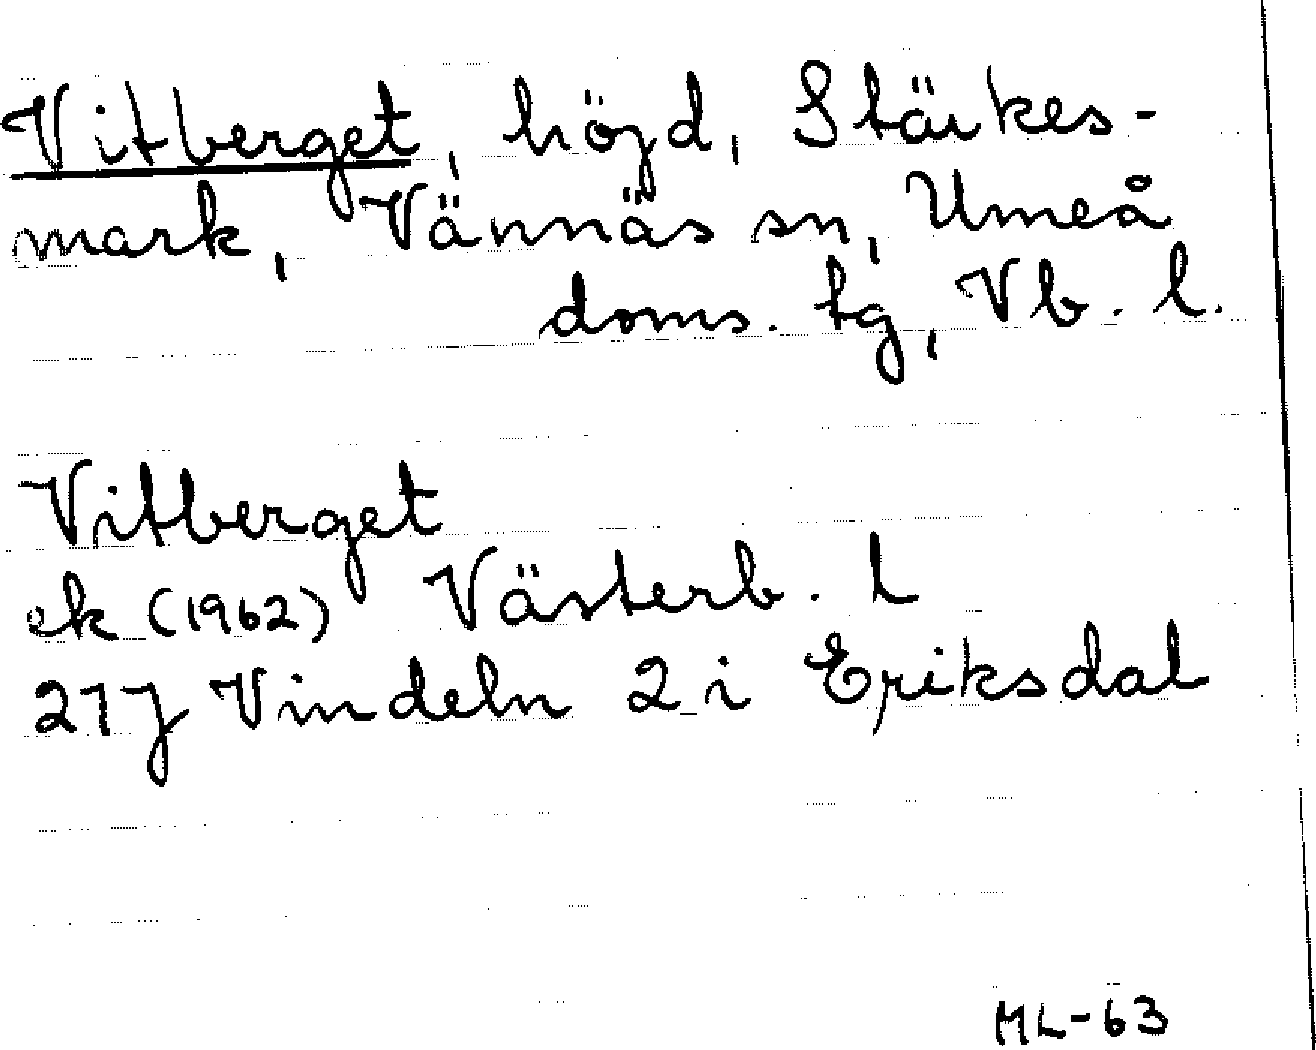 Vitberget, höjd, Stärkes-
mark, Vännäs sn, Umeå
doms. tg, Vb. l.
Vitberget
ek (1962) Västerb. L
21J Vindeln 2 i Eriksdal
ML-63